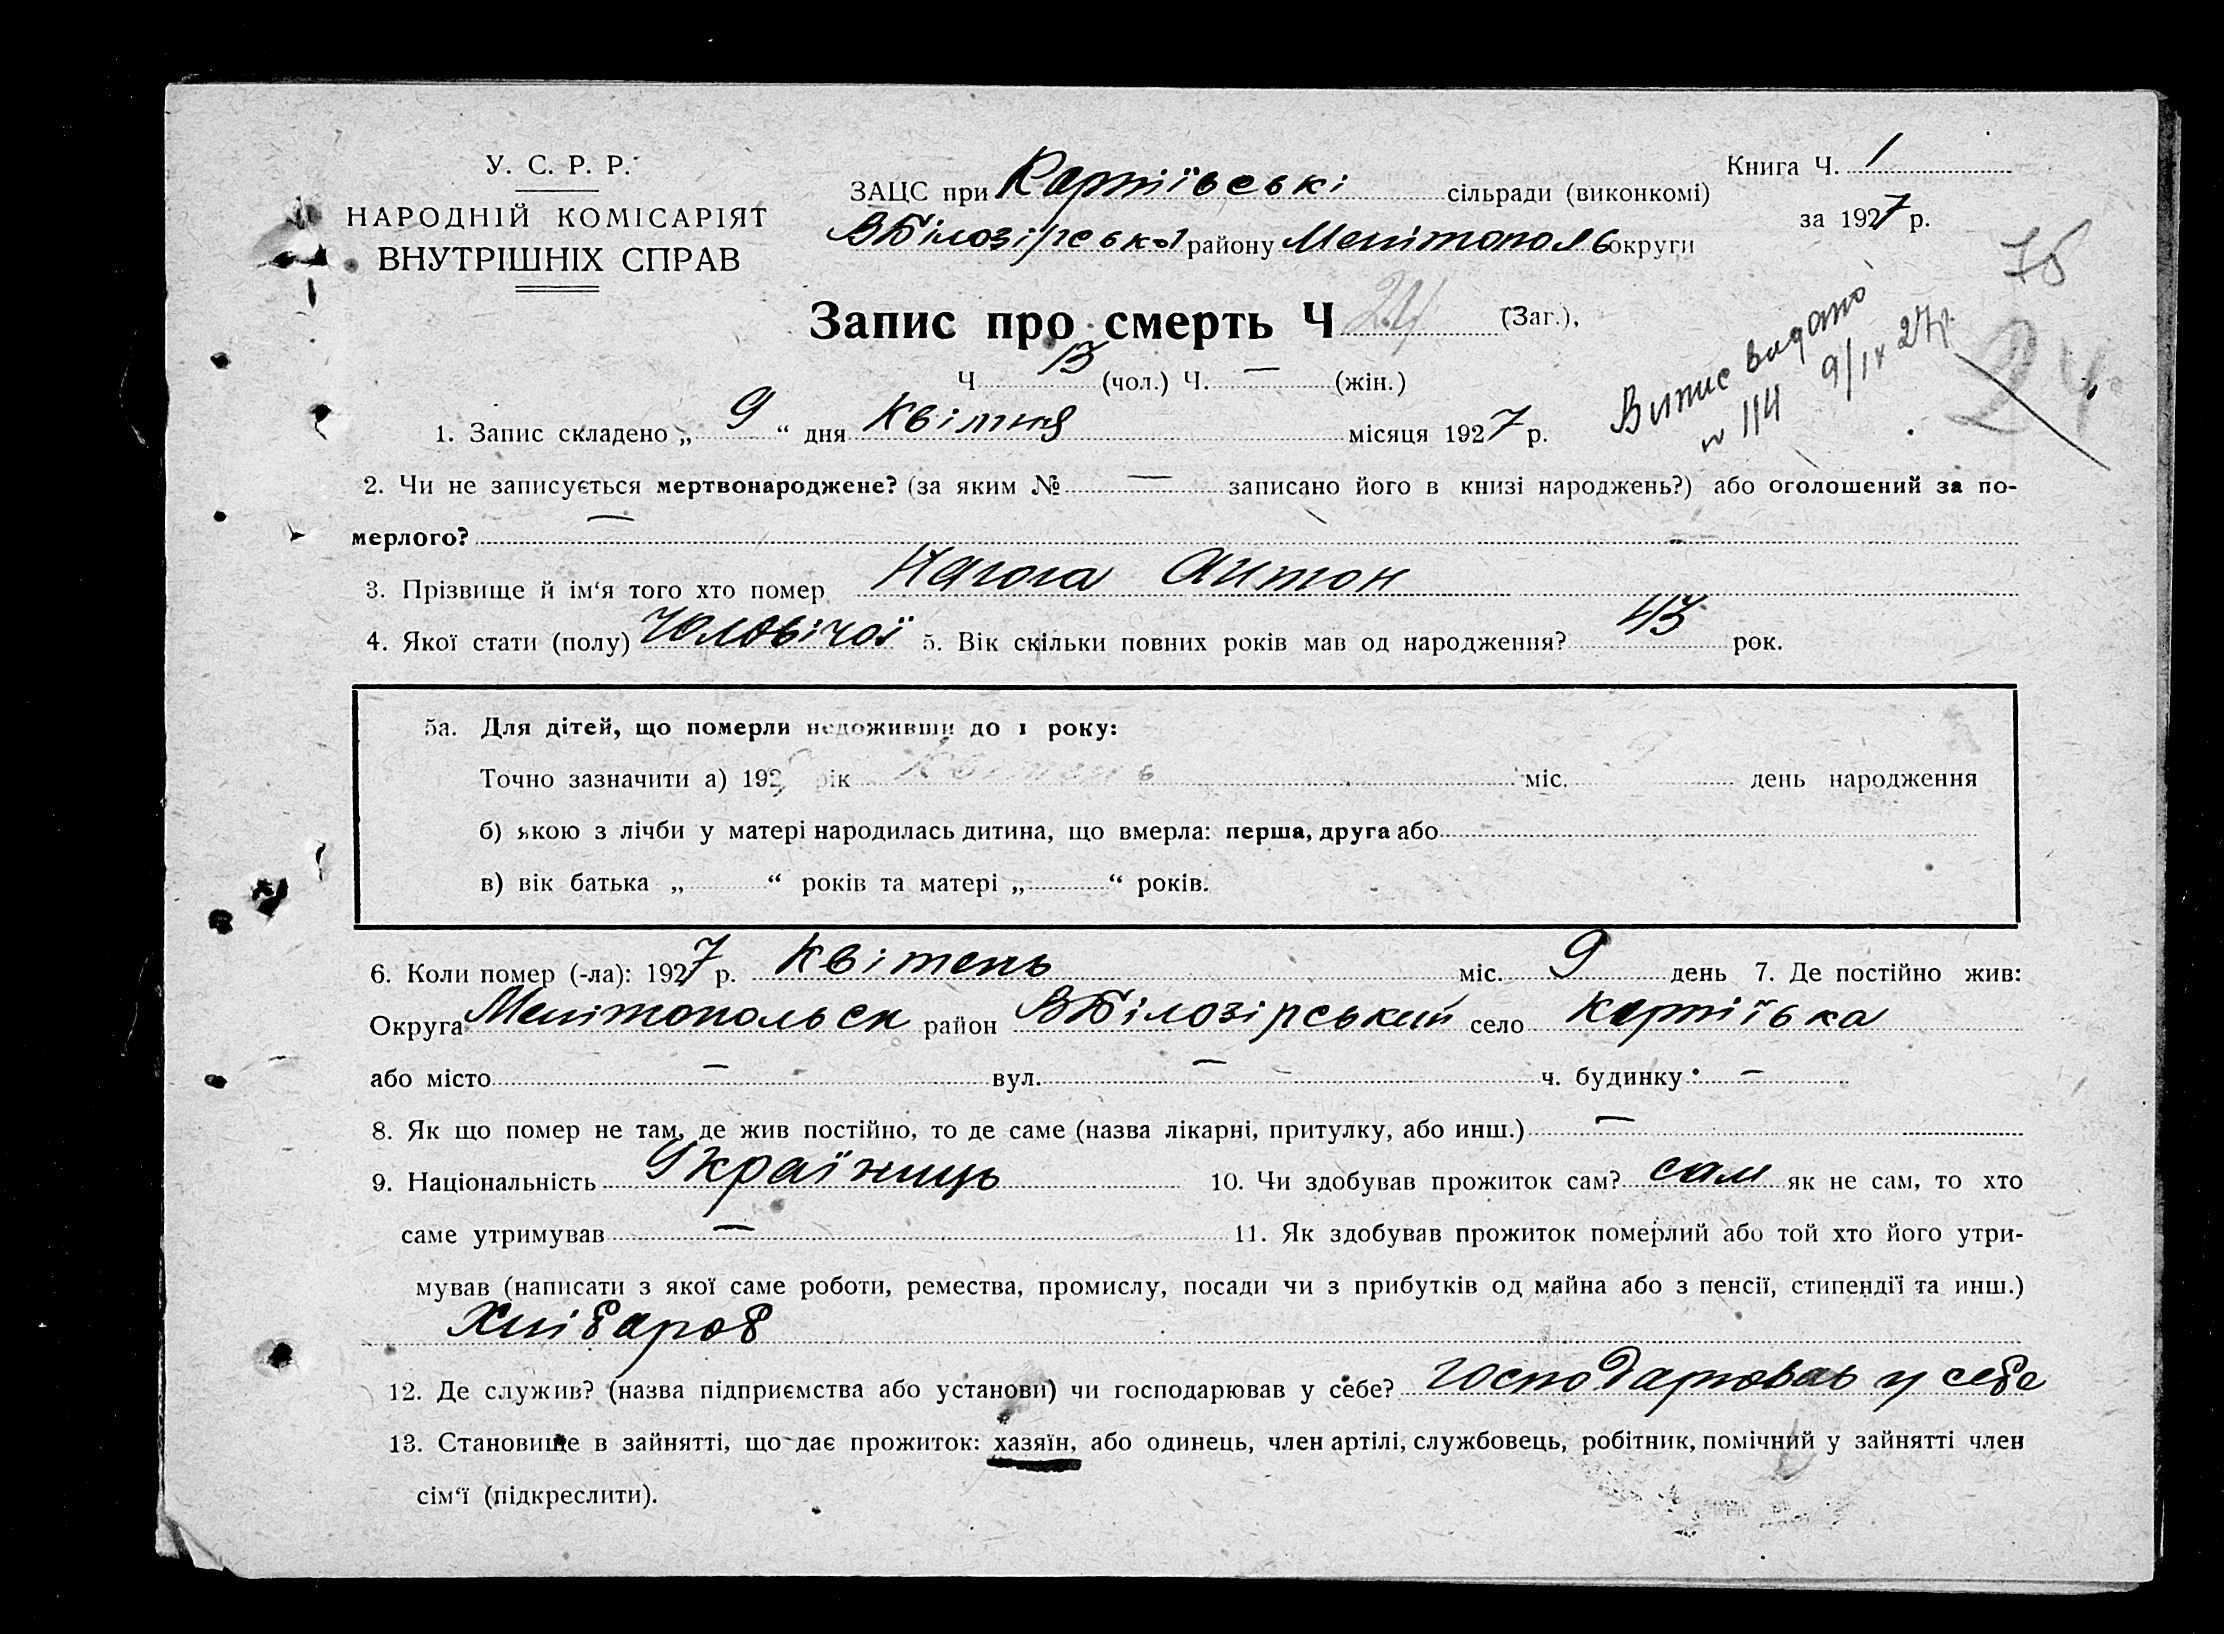 У. С. Р. Р.
НАРОДНІЙ КОМІСАРІЯТ
ВНУТРІШНІХ СПРАВ
ЗАЦС при Карпіївські сільради (виконкомі)
ВБілозірської району Мелітополь округи
Книга Ч. 1
за 1927 р.
76
Запис про смерть Ч 24 (Заг.),
Ч 13 (чол.) Ч. — (жін.)
Випис видано
№ 114 9/IV 27р.
24
1. Запис складено „ 9 “ дня Квітня місяця 1927 р.
2. Чи не записується мертвонароджене? (за яким № — записано його в книзі народжень?) або оголошений за по-
мерлого? —
3. Прізвище й ім‘я того хто помер Нагога Антон
4. Якої стати (полу) Чоловічої 5. Вік скільки повних років мав од народження? 43 рок.
5а. Для дітей, що померли недоживши до 1 року:
Точно зазначити а) 192 рік Квітень міс. день народження
б) якою з лічби у матері народилась дитина, що вмерла: перша, друга або
в) вік батька „ “ років та матері „ “ років.
6. Коли помер (-ла): 1927 р. Квітень міс. 9 день 7. Де постійно жив:
Округа Мелітопольск район ВБілозірський село Карпіївка
або місто — вул. — ч. будинку —
8. Як що помер не там, де жив постійно, то де саме (назва лікарні, притулку, або инш.) —
9. Національність Україниць 10. Чи здобував прожиток сам? сам як не сам, то хто
саме утримував — 11. Як здобував прожиток померлий або той хто його утри-
мував (написати з якої саме роботи, ремества, промислу, посади чи з прибутків од майна або з пенсії, стипендії та инш.)
Хліbароb
12. Де служив? (назва підприємства або установи) чи господарював у себе? господарював у себе
13. Становище в зайнятті, що дає прожиток: хазяїн, або одинець, член артілі, службовець, робітник, помічний у зайнятті член
сім‘ї (підкреслити).